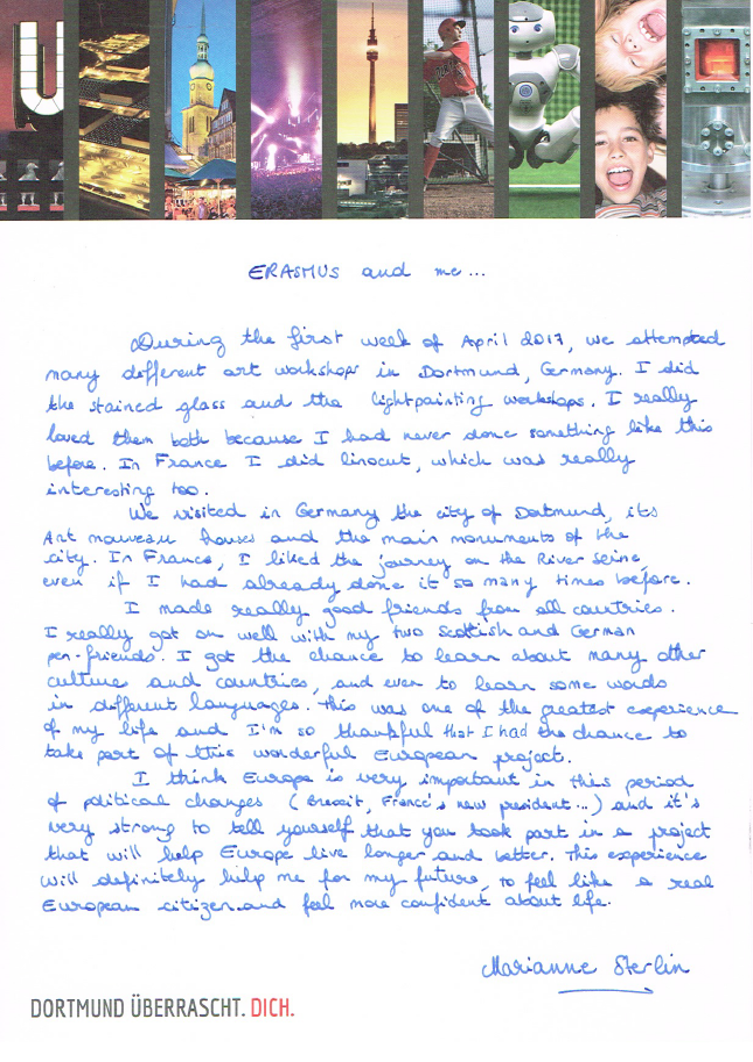 U
ERASMUS and me...
During the first week of April 2017, we attempted
many different art workshops in Dortmund, Germany. I did
the stained glass and the lightpainting workshops. I really
loved them both because I had never done something like this
before. In France I did linocut, which was really
interesting too.
We visited in Germany the city of Dortmund, its
Art nouveau houses and the main monuments of the
city. In France, I liked the journey on the River Seine,
even if I had already done it so many times before.
I made really good friends from all countries.
I really got on well with my two Scottish and German
pen-friends. I got the chance to learn about many other
culture and countries, and even to learn some words
in different languages. This was one of the greatest experience
of my life and I'm so thankful that I had the chance to
take part of this wonderful European project.
I think Europe is very important in this period
of political changes (Brexit, France's new president...) and it's
very strong to tell yourself that you took part in a project
that will help Europe live longer and better. This experience
will definitely help me for my future, to feel like a real
European citizen and feel more confident about life.
Marianne Sterlin
DORTMUND ÜBERRASCHT. DICH.